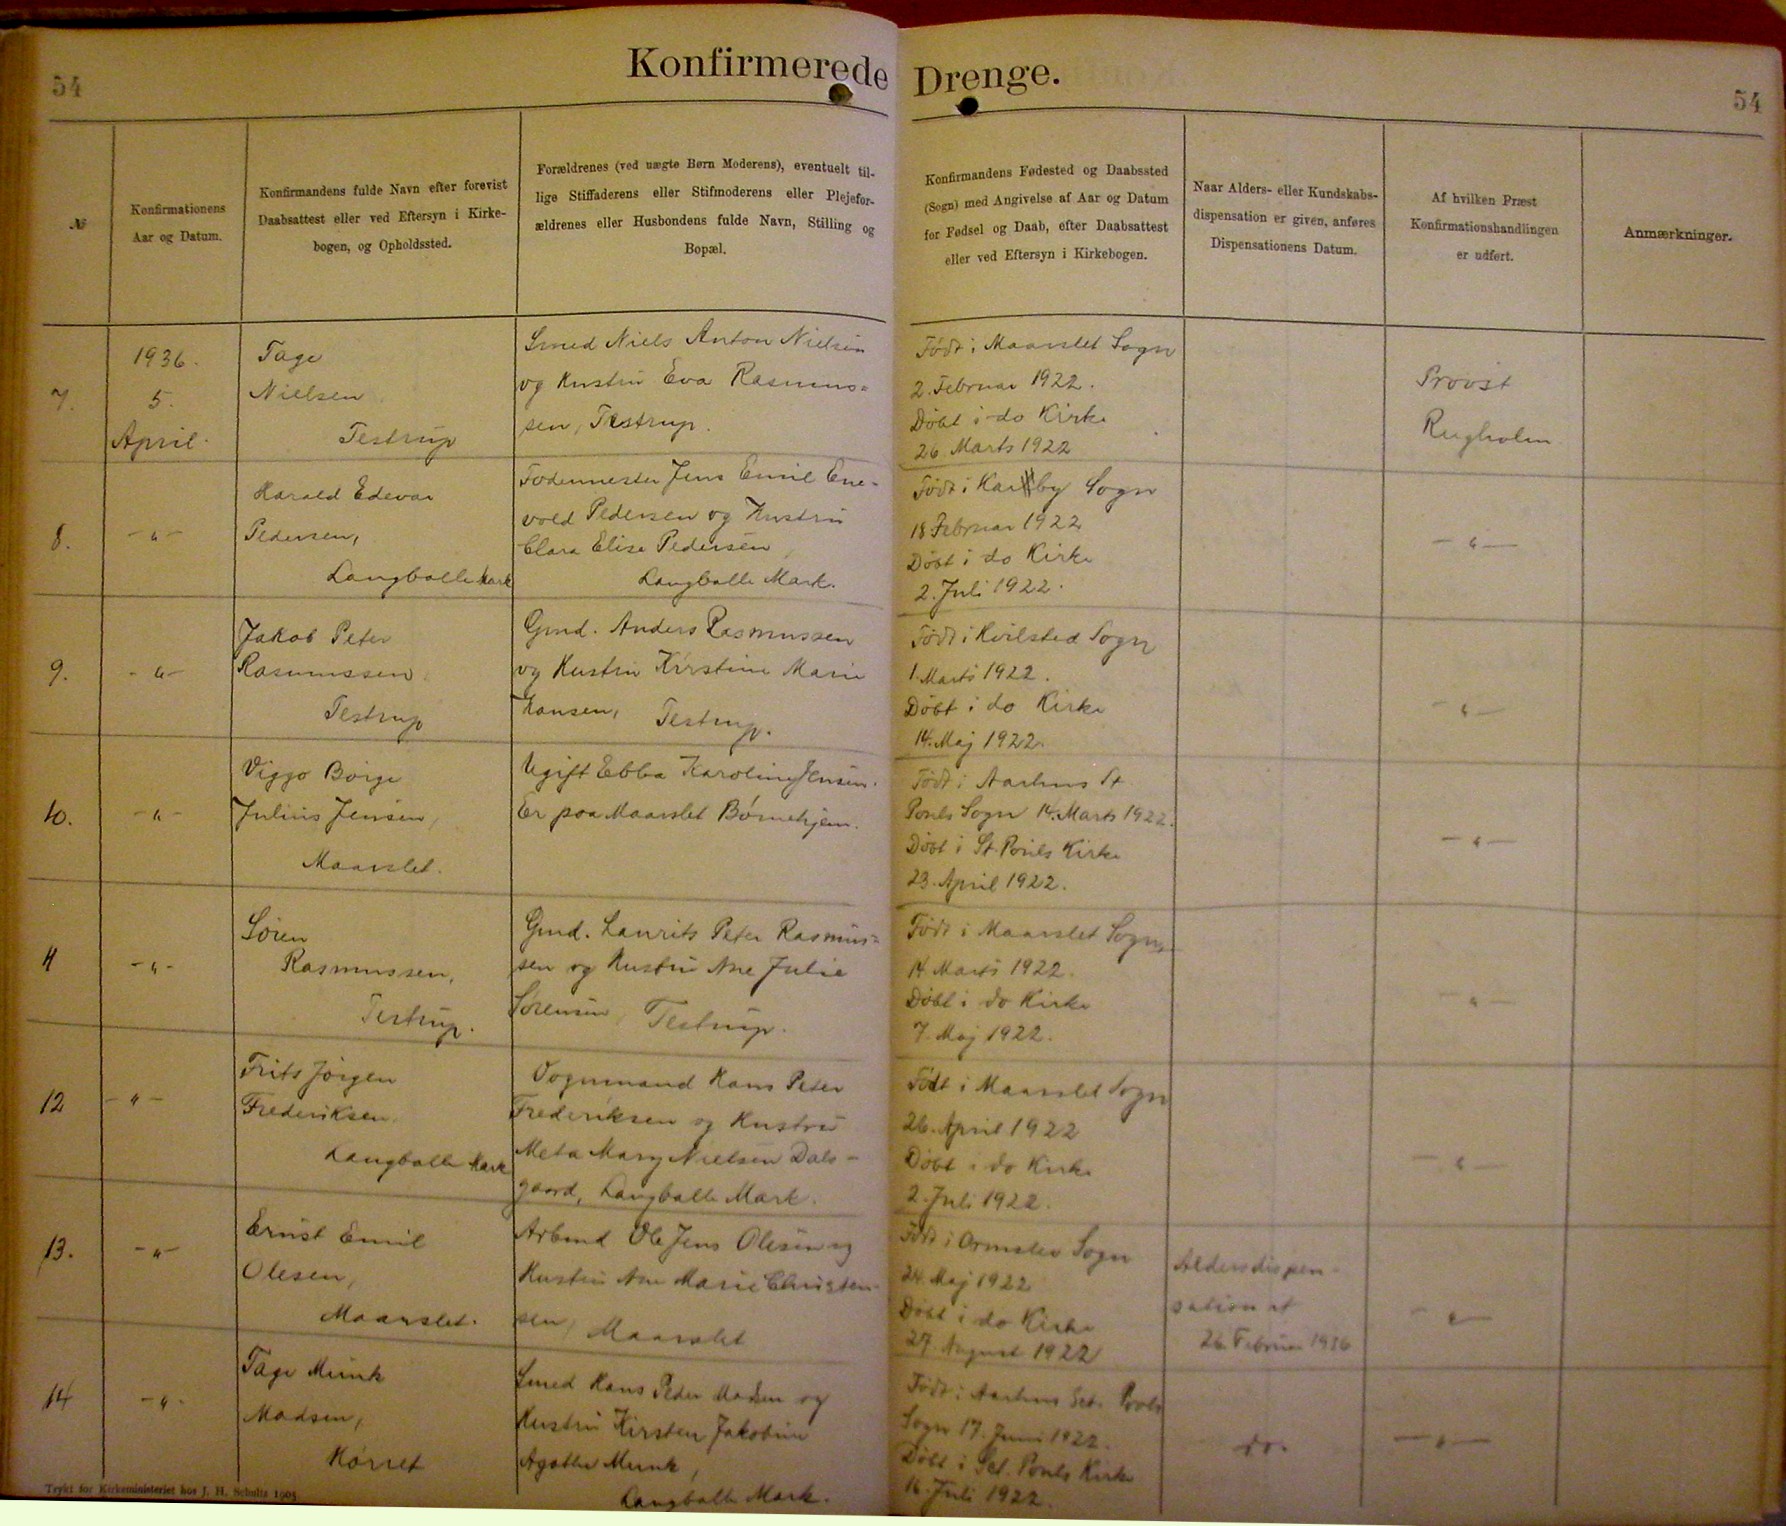 54
Konfirmerede Drenge.
54
№
Konfirmationens
Aar og Datum.
Konfirmandens fulde Navn efter forevist
Daabsattest eller ved Eftersyn i Kirke-
bogen, og Opholdssted.
Forældrenes (ved uægte Børn Moderens), eventuelt til-
lige Stiffaderens eller Stifmoderens eller Plejefor-
ældrenes eller Husbondens fulde Navn, Stilling og
Bopæl.
Konfirmandens Fødested og Daabssted
(Sogn) med Angivelse af Aar og Datum
for Fødsel og Daab, efter Daabsattest
eller ved Eftersyn i Kirkebogen.
Naar Alders- eller Kundskabs-
dispensation er given, anføres
Dispensationens Datum.
Af hvilken Præst
Konfirmationshandlingen
er udført.
Anmærkninger.
7.
1936.
5.
April.
Tage
Nielsen
Testrup
Smed Niels Anton Nielsen
og Hustru Eva Rasmus=
sen, Testrup.
Født i Maarslet Sogn
2. Februar 1922.
Döbt i do Kirke
26. Marts 1922
Provst
Rugholm
8.
-"-
Harald Edevar
Pedersen,
Langballe Mark
Fodermester Jens Emil Ene-
vold Pedersen og Hustru
Clara Elise Pedersen,
Langballe Mark.
Født i Karlby Sogn
18 Februar 1922
Döbt i do Kirke
2. Juli 1922.
-"-
9.
-"-
Jakob Peter
Rasmussen
Testrup
Gmd. Anders Rasmussen
og Hustru Kirstine Marie
Hansen, Testrup.
Født i Hvilsted Sogn
1. Marts 1922.
Döbt i do Kirke
14. Maj 1922.
-"-
10.
-"-
Viggo Börge
Julius Jensen,
Maarslet.
Ugift Ebba Karoline Jensen.
Er paa Maarslet Børnehjem.
Født i Aarhus St
Pouls Sogn 14. Marts 1922.
Döbt i St. Pouls Kirke
23. April 1922.
-"-
11
-"-
Sören
Rasmussen,
Testrup.
Gmd. Laurits Peter Rasmus=
sen og Hustru Ane Julie
Sörensen, Testrup.
Født i Maarslet Sogn
14 Marts 1922.
Döbt i do Kirke
7. Maj 1922.
-"-
12
-"-
Frits Jörgen
Frederiksen.
Langballe Mark
Vognmand Hans Peter
Frederiksen og Hustru
Meta Mary Nielsen Dals-
gaard, Langballe Mark.
Født i Maarslet Sogn
26. April 1922
Döbt i do Kirke
2. Juli 1922.
-"-
13.
-"-
Ernst Emil
Olesen,
Maarslet.
Arbmd Ole Jens Olesen og
Hustru Ane Marie Christen-
sen, Maarslet
Født i Ormslev Sogn
24. Maj 1922
Döbt i do Kirke
27 August 1922
Aldersdispen-
sation af
26 Februar 1936
-"-
14
-"-
Tage Munk
Madsen,
Hörret
Smed Hans Peder Madsen og
Hustru Kirsten Jakobine
Agathe Munk,
Langballe Mark.
Født i Aarhus Sct. Pouls
Sogn 17. Juni 1922.
Döbt i Sct. Pouls Kirke
16. Juli 1922.
do.
-"-
Trykt for Kirkeministeriet hos J. H. Schultz 1905.